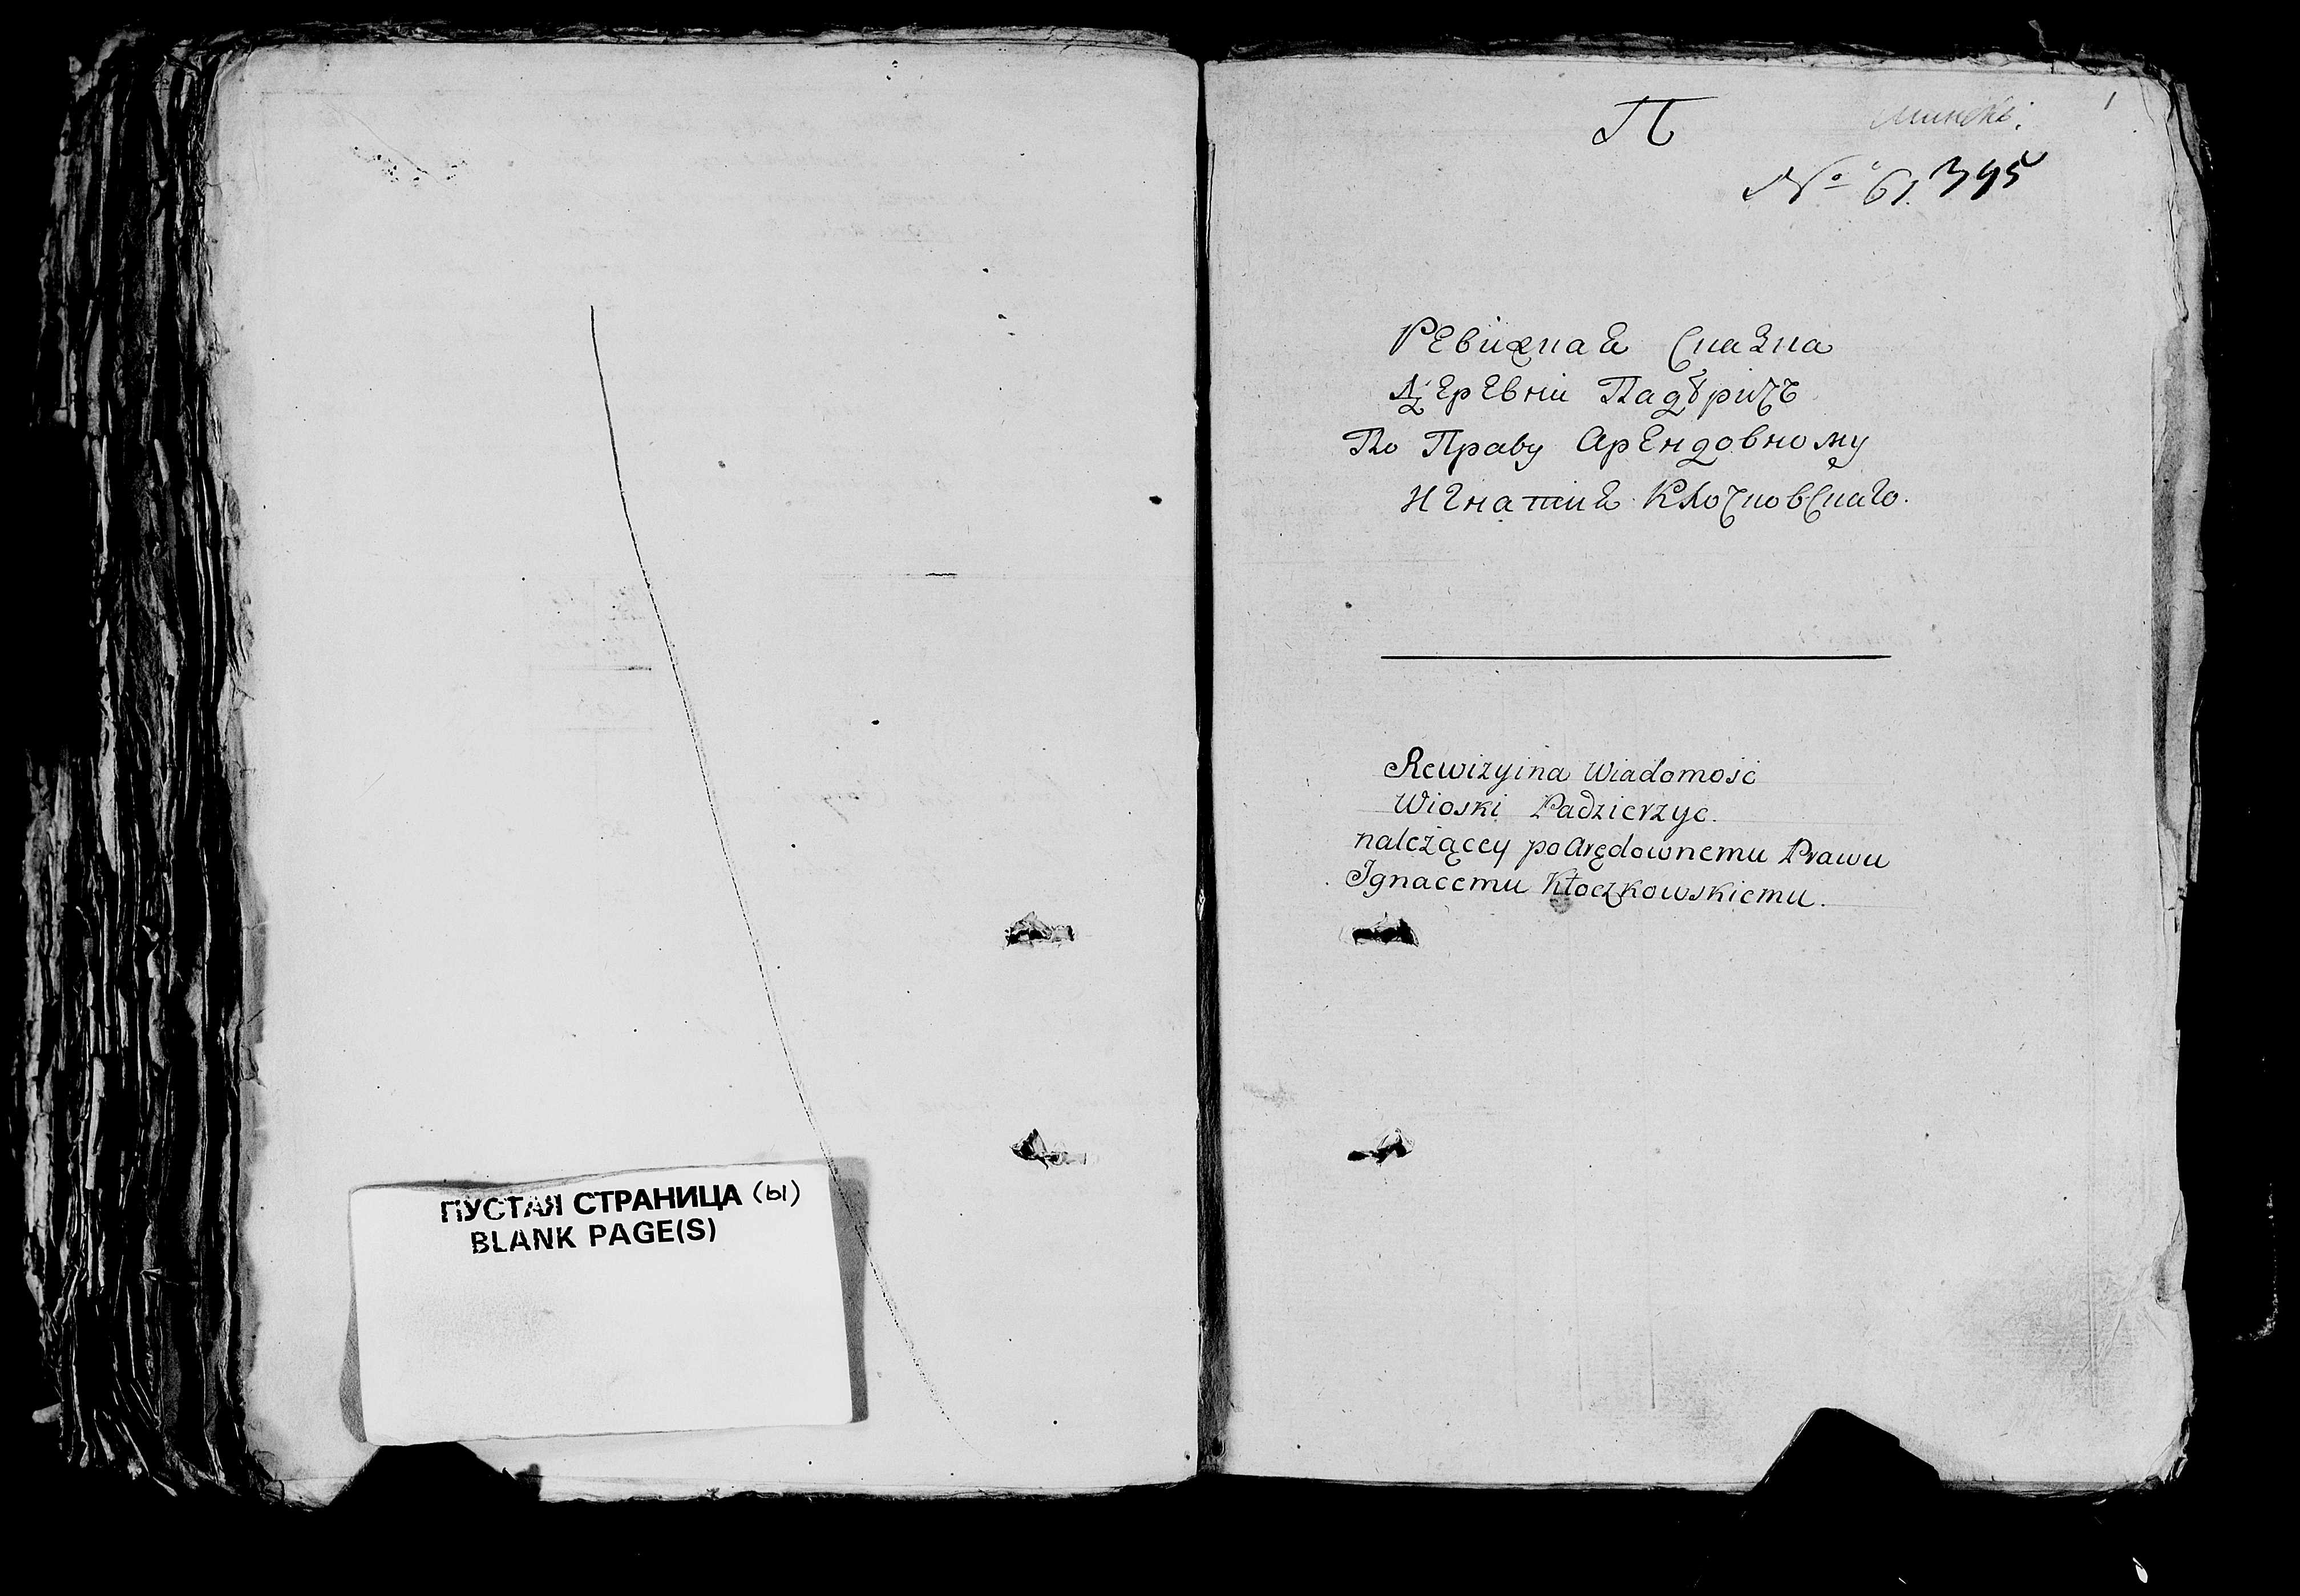 ПУСТАЯ СТРАНИЦА (ы)
BLANK PAGE(S)
П
1
№ 61. 395
Ревизкая Сказка
Деревни Падѣричъ
По Праву Арендовному
Игнатия Клочковскаго.
Rewizyina Wiadomość
Wioski Padzierzyc.
należącey po Arędownemu Prawu
Ignacemu Kłoczkowskiemu.